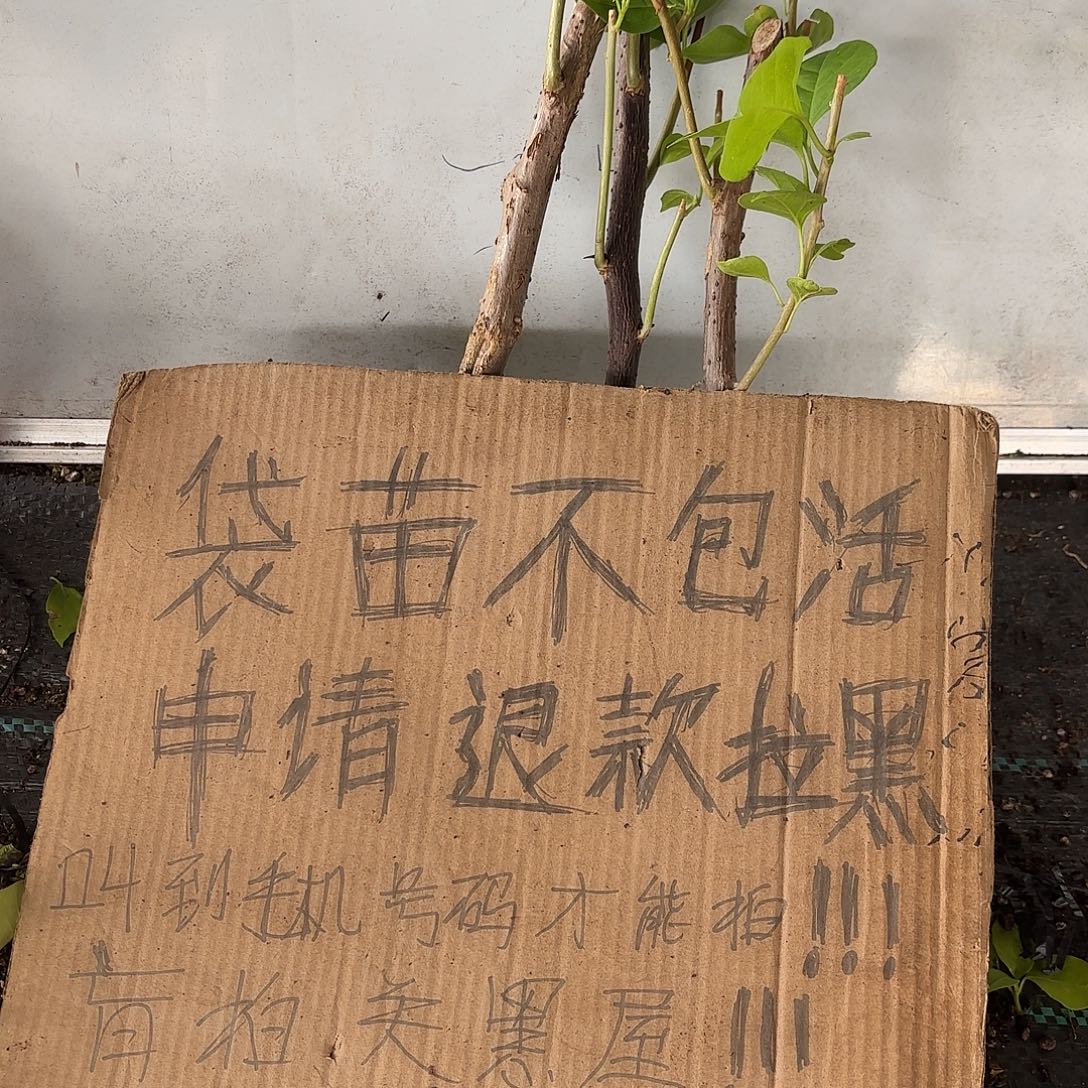 袋苗不包活
申请退款拉黑
叫到手机号码才能拍!!!
盲拍关黑屋!!!